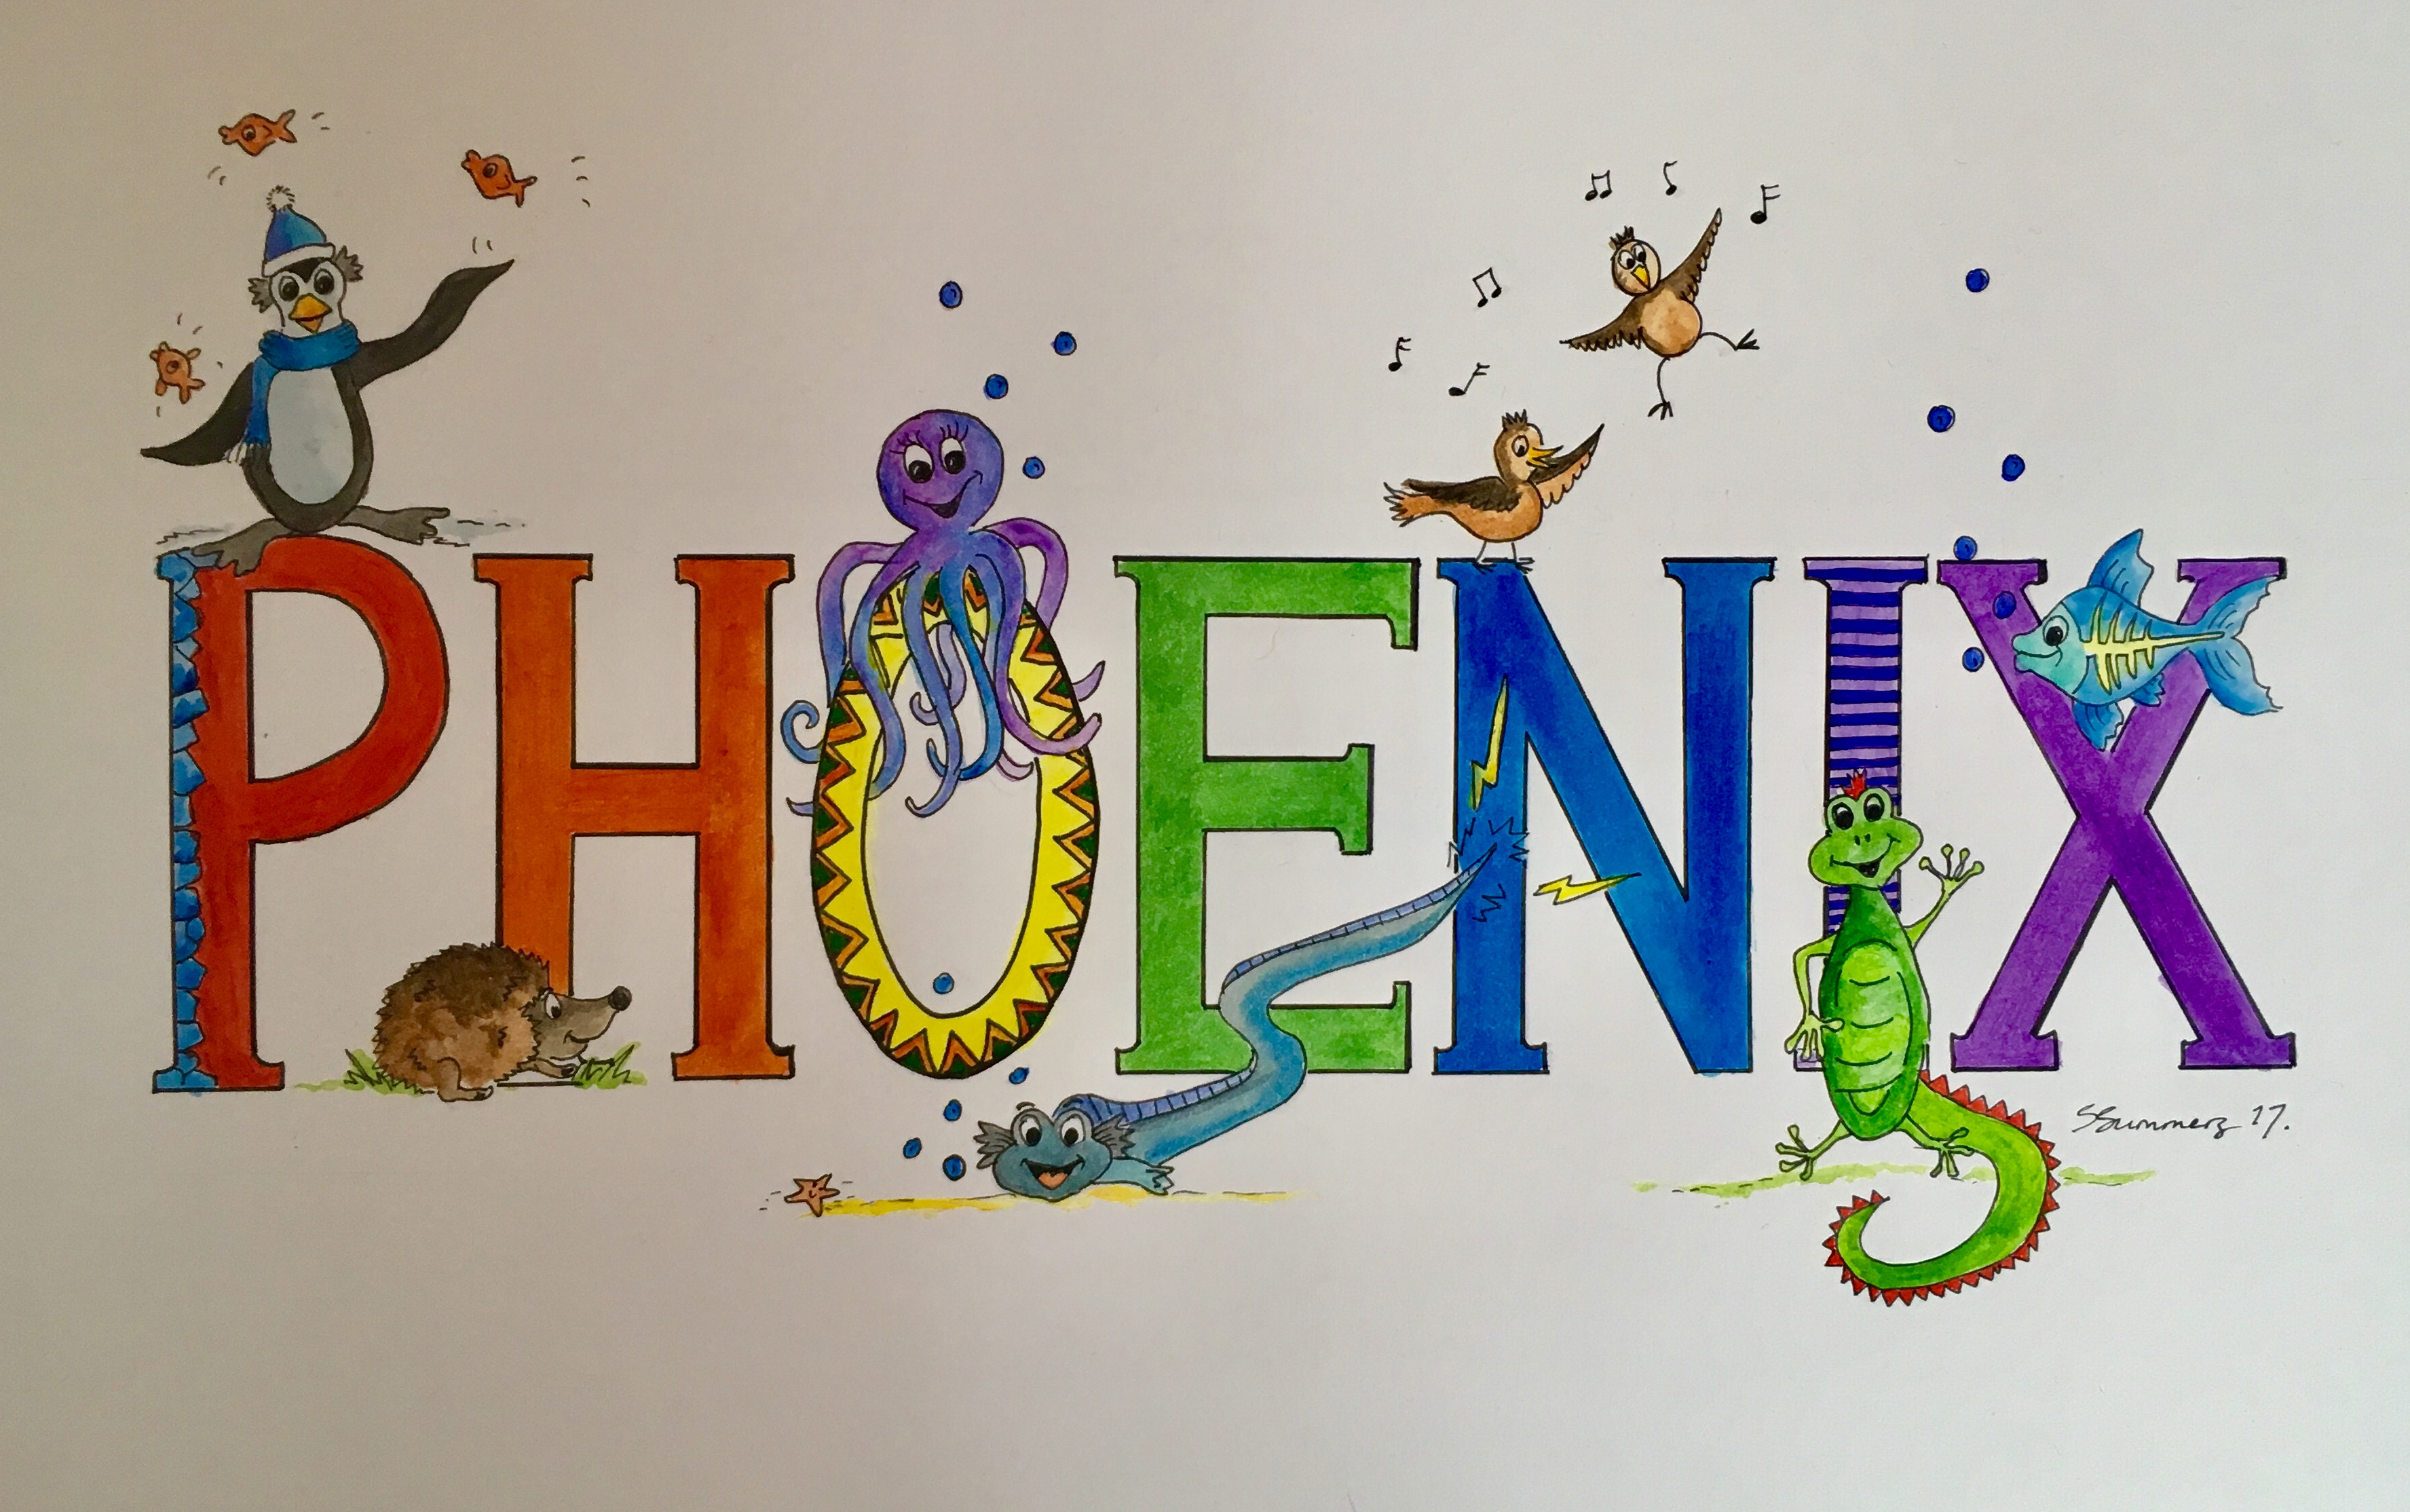 PHOENIX
SSummers 17.